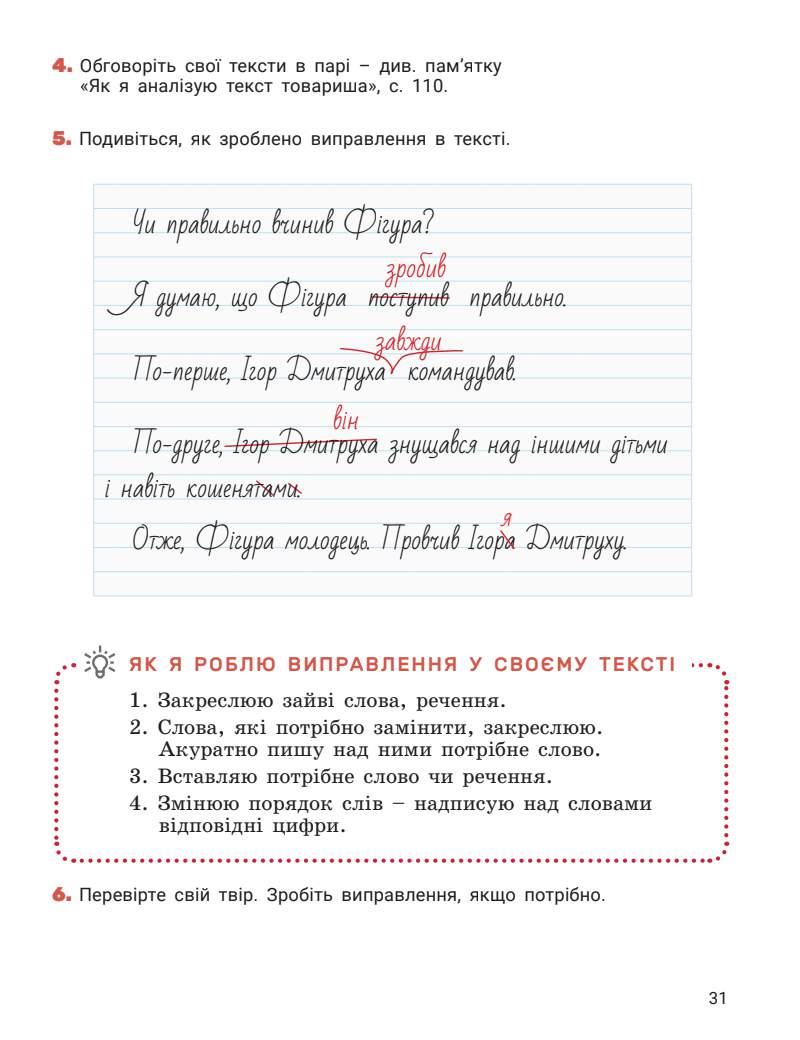 4. Обговоріть свої тексти в парі – див. пам’ятку
«Як я аналізую текст товариша», с. 110.
5. Подивіться, як зроблено виправлення в тексті.
Чи правильно вчинив Фігура?
зробив
Я думаю, що Фігура поступив правильно.
завжди
По-перше, Ігор Дмитруха командував.
він
По-друге, Ігор Дмитруха знущався над іншими дітьми
і навіть кошенятами.
я
Отже, Фігура молодець. Провчив Ігора Дмитруху.
ЯК Я РОБЛЮ ВИПРАВЛЕННЯ У СВОЄМУ ТЕКСТІ
1. Закреслюю зайві слова, речення.
2. Слова, які потрібно замінити, закреслюю.
Акуратно пишу над ними потрібне слово.
3. Вставляю потрібне слово чи речення.
4. Змінюю порядок слів – надписую над словами
відповідні цифри.
6. Перевірте свій твір. Зробіть виправлення, якщо потрібно.
31